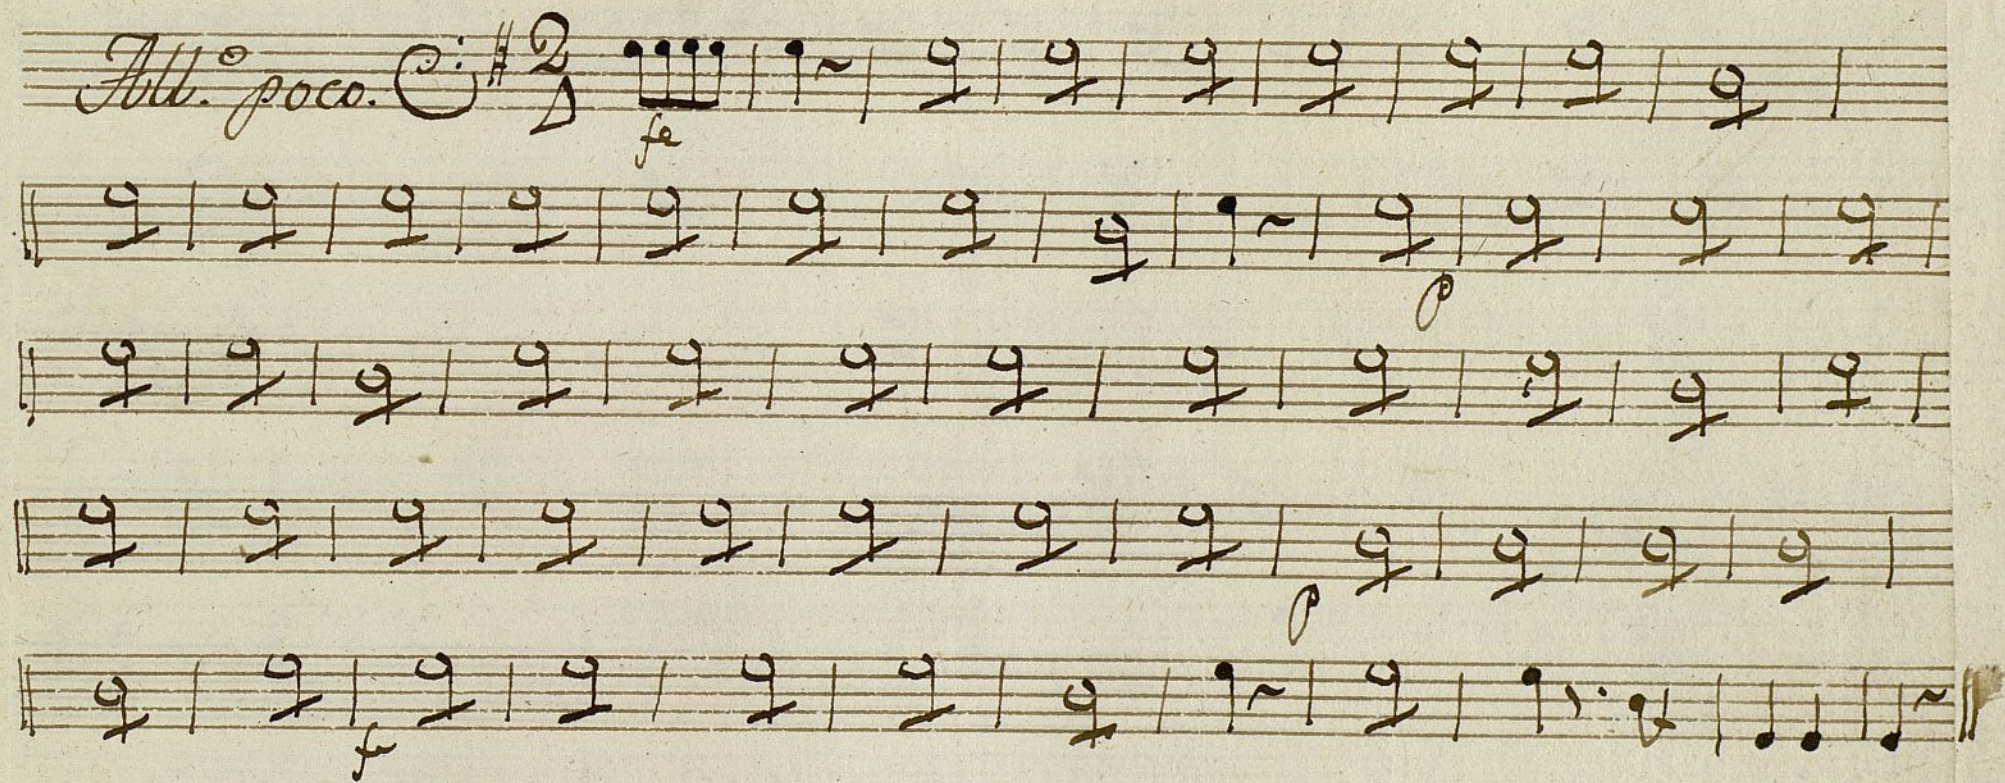 All.º poco. 2
fe
p
p
fe